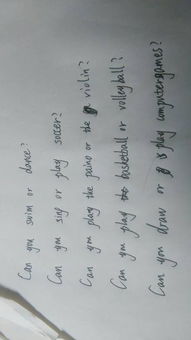 Can you swim or dance?
Can you sing or play soccer?
Can you play the paino or the violin?
Can you play basketball or volleyball?
Can you draw or play computergames?